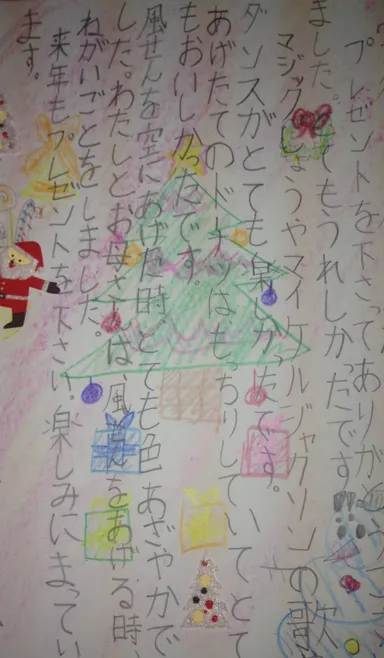 プレゼントを下さってありがとうござ
ました。とてもうれしかったです
マジックしょうやマイケルジャクソンの歌
ダンスがとても楽しかったです。
あげたてのドーナツはもっちりしていてとて
もおいしかったです。
風せんを空にあげた時、とても色あざやかで
した。わたしとお母さんは、風せんをあげる時、
ねがいごとをしました。
来年もプレゼントを下さい。楽しみにまってい
ます。